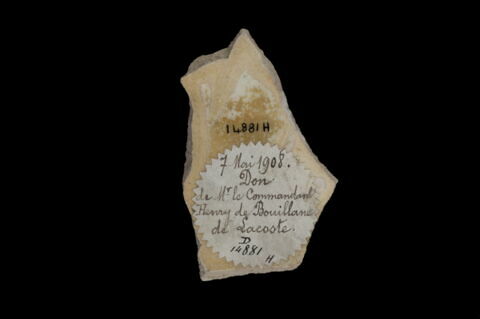 14881H
7 Mai 1908.
Don
de Mr. le Commandant
Henry de Bouillane
de Lacoste.
D
14881
H